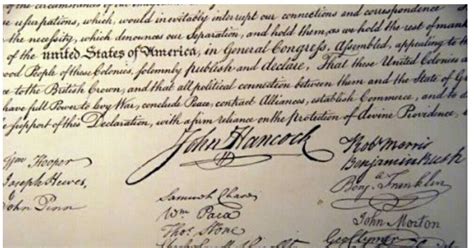 se usurpations, which, would inevitably interrupt our connections and correspondence
the necessity, which denounces our Separation, and hold them, as we hold the rest of mank
of the united States of America, in General Congress, Assembled, appealing to the
ood People of these Colonies, solemnly publish and declare, That these United Colonies a
ce to the British Crown, and that all political connection between them and the State of G
have full Power to levy War, conclude Peace, contract Alliances, establish Commerce, and to d
support of this Declaration, with a firm reliance on the protection of divine Providence,
John Hancock
Rob Morris
Wm Hooper
Benjamin Rush
Joseph Hewes,
Benj. Franklin
John Penn
Samuel Chase
John Morton
Wm Paca
Geo Clymer
Thos. Stone